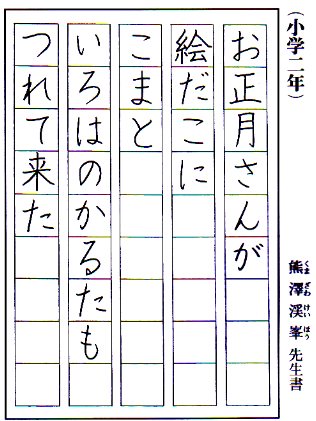 (小学二年)
お正月さんが
絵だこに
こまと
いろはのかるたも
つれて来た
熊澤渓峯先生書
くまざわけいほう